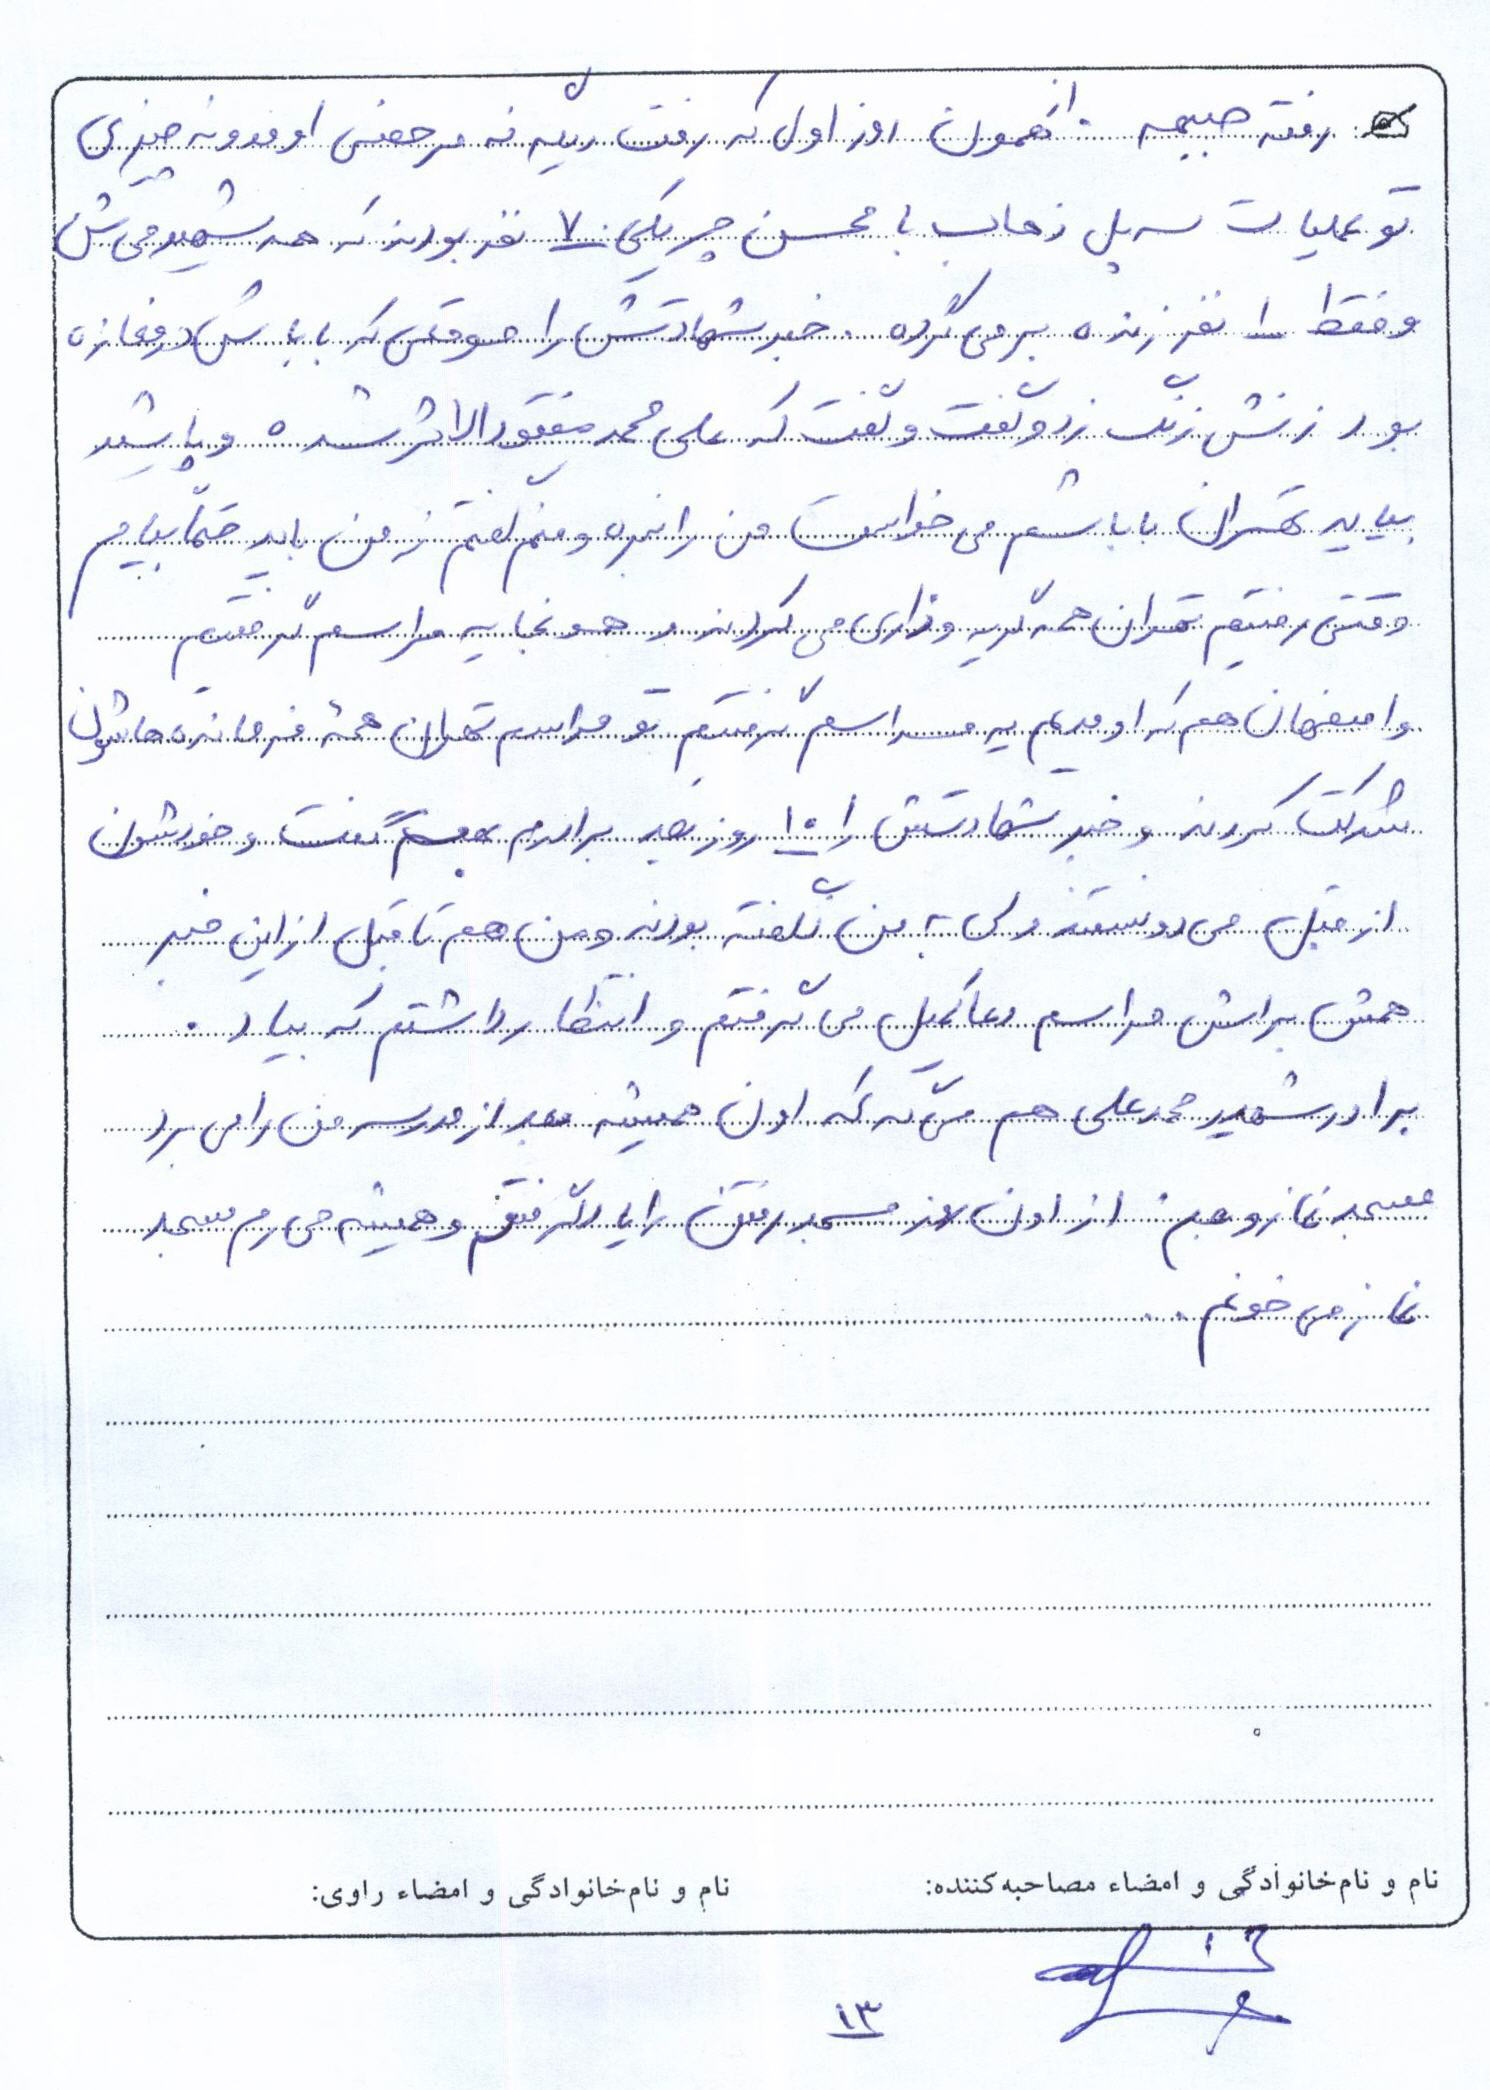 که رفته جبهه. از همون روز اول که رفت دیگه نه مرخصی اومد و نه چیزی
تو عملیات سرپل ذهاب با محسن چریکی ۷۰ نفر بودند که همه شهید می‌شن
و فقط ۱ نفر زنده برمی‌گرده. خبر شهادتش را موقعی که باباش در مغازه
بود زنش زنگ زد و گفت و گفت که علی محمد مفقودالاثر شده و پاشید
بیایید تهران باباشم می‌خواست من را نبره و منم گفتم نه من باید حتماً بیام
وقتی رفتیم تهران همه گریه و زاری می‌کردند و همونجا یه مراسم گرفتیم
و اصفهان هم که اومدیم یه مراسم گرفتیم تو مراسم تهران همه فرمانده‌هاشون
شرکت کردند و خبر شهادتش را ۱۵ روز بعد برادرم بهم گفت و خودشون
از قبل می‌دونستند ولی به من نگفته بودند و من هم تا قبل از این خبر
همش براش مراسم دعا کمیل می‌گرفتم و انتظار داشتم که بیاد.
برادر شهید محمدعلی هم می‌گه که اون همیشه بعد از مدرسه من را می‌برد
مسجد نماز و از اون روز مسجد رفتن را یاد گرفتم و همیشه می‌رم مسجد
نماز می‌خونم..
نام و نام‌خانوادگی و امضاء مصاحبه‌کننده:
نام و نام‌خانوادگی و امضاء راوی:
۱۳